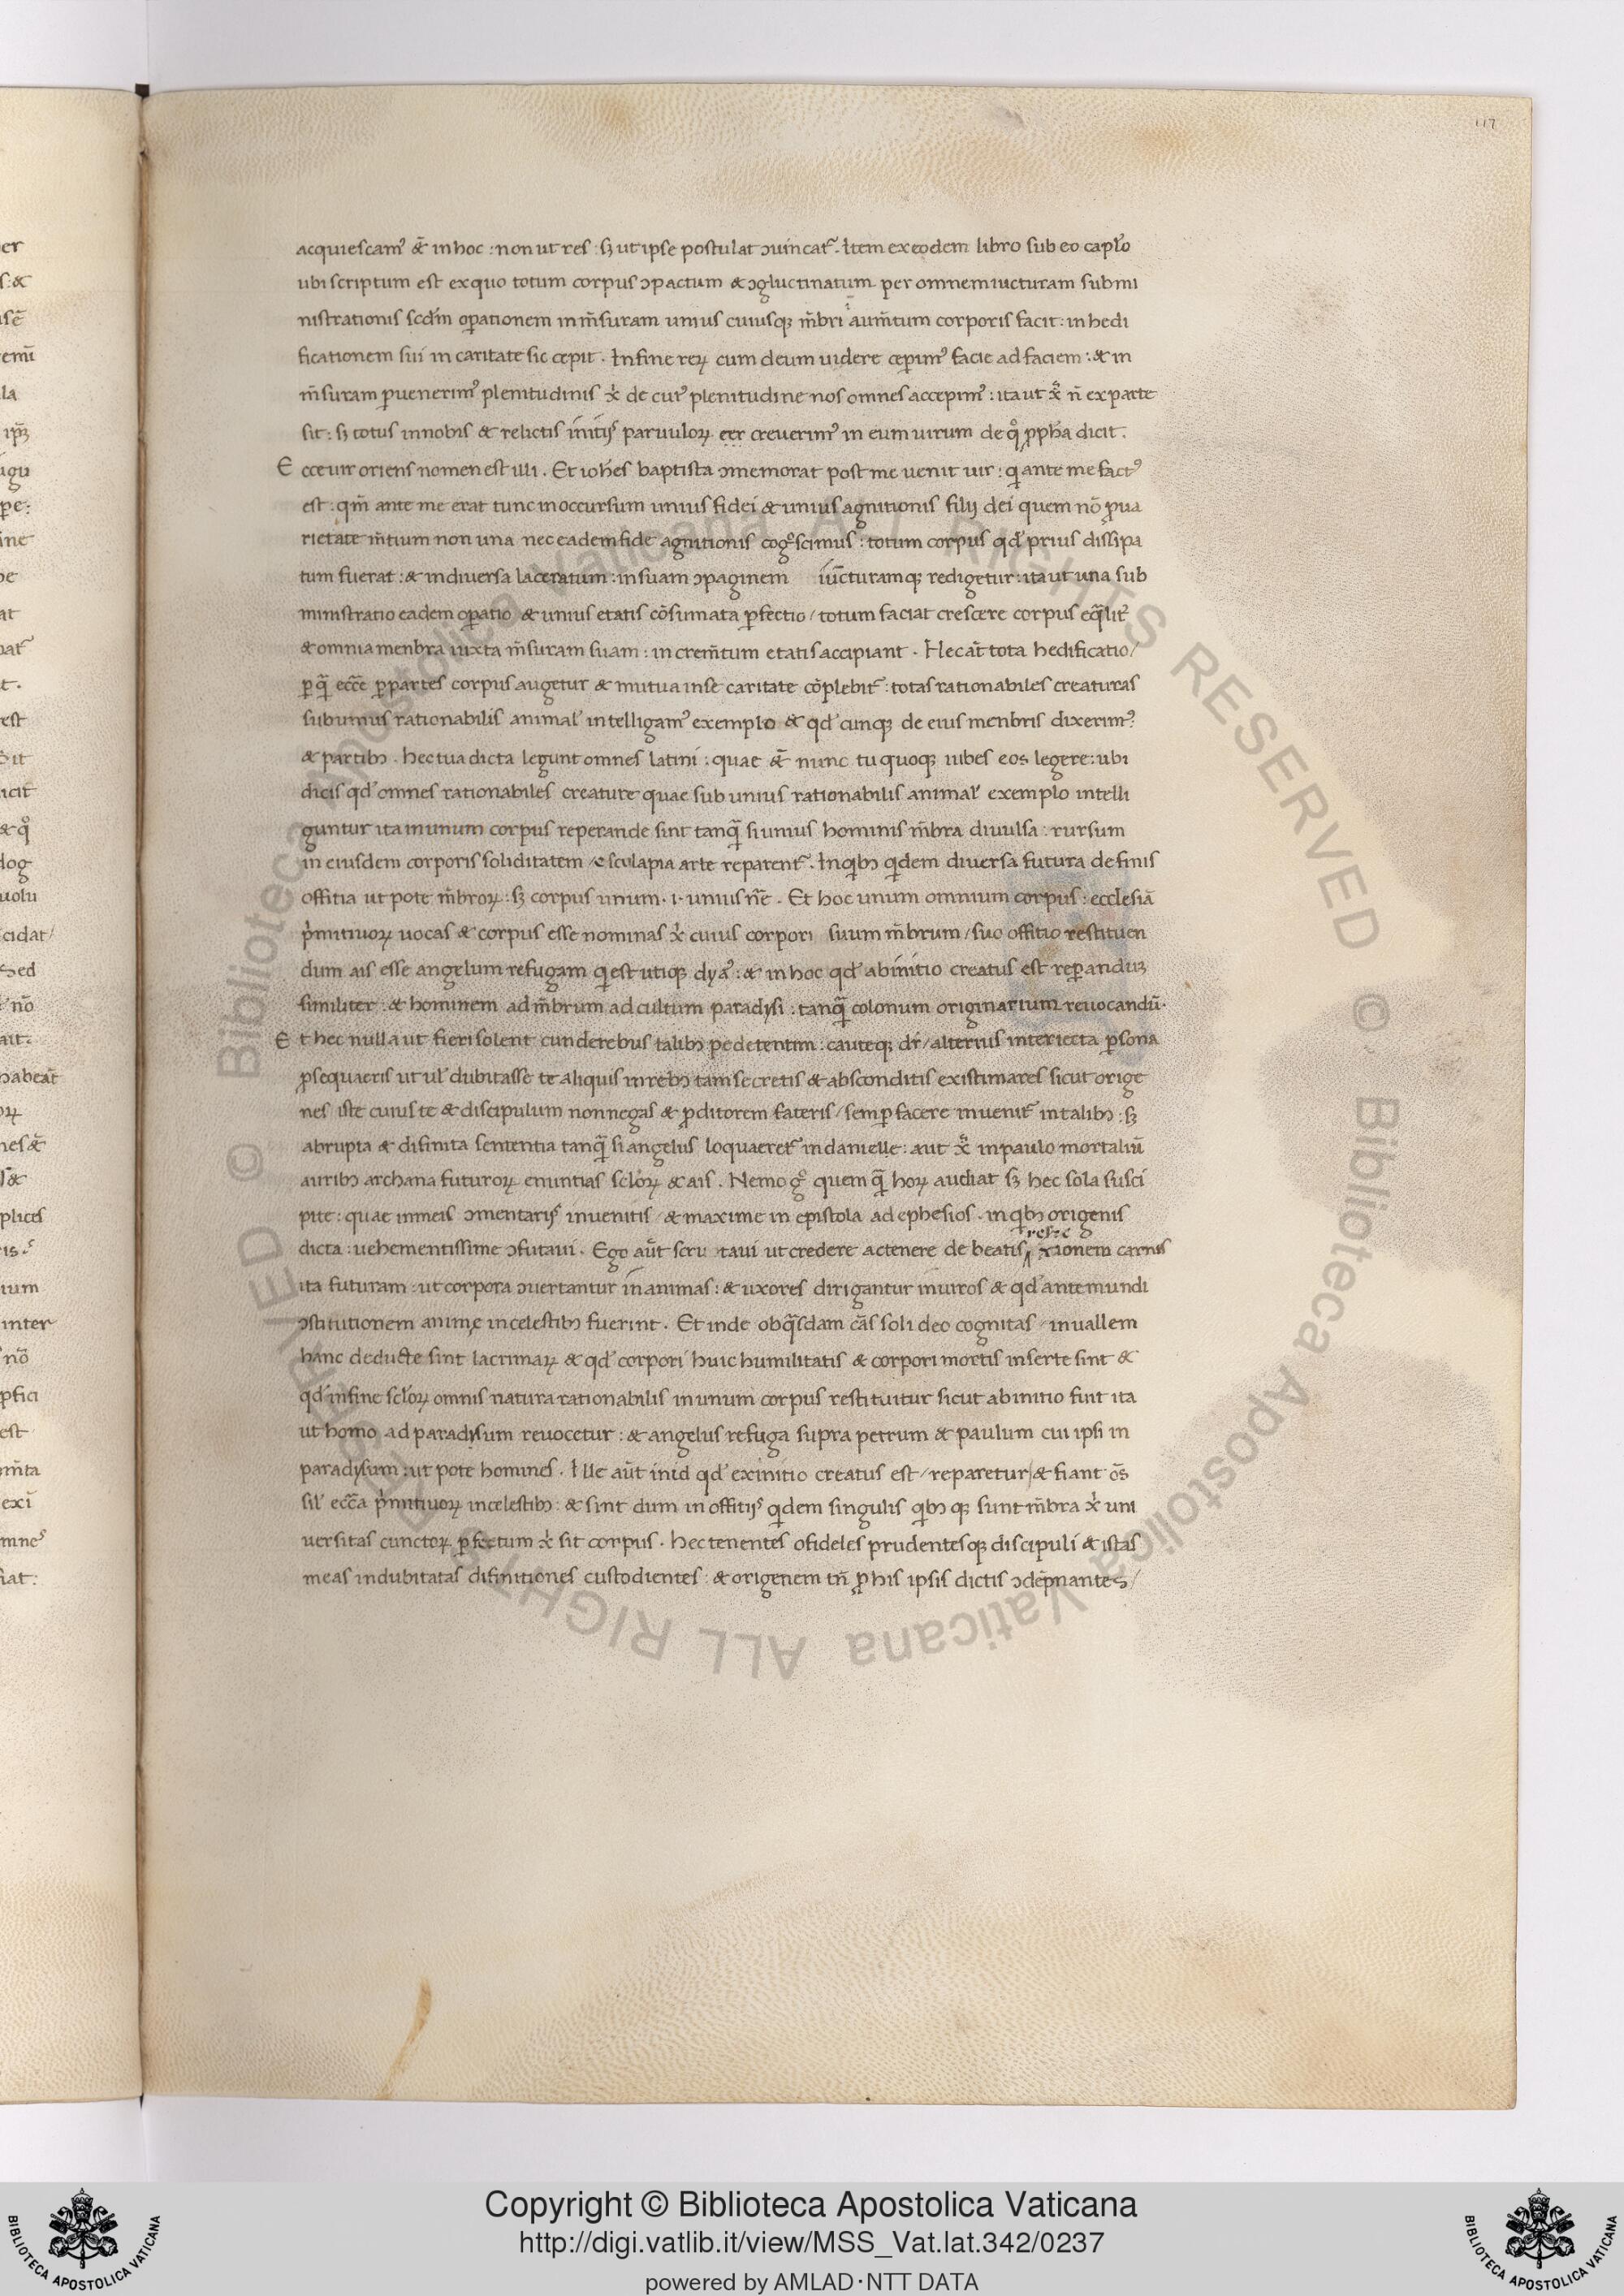 117
acquiescamꝰ &̄ in hoc : non ut res : sꝫ ut ipse postulat ɔuincat᷑. Item ex eodem libro sub eo caplo
ubi scriptum est ex quo totum corpus ɔpactum & ɔgluctinatum per omnem iucturam submi
nistrationis scdm oꝑationem in m̄suram unius cuiusqꝫ m̄bri aum̄tum corporis facit : in hedi
ficationem sui in caritate sic cepit . In fine reꝝ cum deum uidere ceperimꝰ facie ad faciem : & in
m̄suram ꝑuenerimꝰ plenitudinis xp̄i de cuiꝰ plenitudine nos omnes accepimꝰ : ita ut xp̄s n̄ ex parte
sit : sꝫ totus in nobis & relictis initijs paruuloꝝ creuerimꝰ in eum uirum de qͦ ꝓpha dicit .
Ecce uir oriens nomen est illi . Et iohes baptista ɔmemorat post me uenit uir : qi ante me factꝰ
est : qm̄ ante me erat tunc in occursum unius fidei & unius agnitionis filij dei quem nō ꝓ ua
rietate m̄tium non una nec eadem fide agnitionis cogͦscimus : totum corpus qd' prius dissipa
tum fuerat : & in diuersa laceratum : in suam ɔpaginem iūcturamqꝫ redigetur : ita ut una sub
ministratio eadem oꝑatio & unius etatis cōsumata ꝑfectio / totum faciat crescere corpus eqͣlit᷑
& omnia menbra iuxta m̄suram suam : in crem̄tum etatis accipiant . Hec āt tota hedificatio /
ꝑ qͣ̄ ecc̄e ꝑ partes corpus augetur & mutua in se caritate cōplebit᷑ : totas rationabiles creaturas
sub unius rationabilis animal' intelligamꝰ exemplo & qd' cunqꝫ de eius menbris dixerimꝰ
& partibꝫ . hec tua dicta legunt omnes latini : quae &̄ nunc tu quoqꝫ iubes eos legere : ubi
dicis qd' omnes rationabiles creature quae sub unius rationabilis animal' exemplo intelli
guntur ita in unum corpus reperande sint tanqͣ̄ si unius hominis m̄bra diuulsa : rursum
in eiusdem corporis soliditatem / esculapia arte reparent᷑ . In qibꝫ qidem diuersa futura definis
offitia ut pote m̄broꝝ : sꝫ corpus unum .i. unius n̄e . Et hoc unum omnium corpus : ecclesiā
pͥmitiuoꝝ uocas & corpus esse nominas xp̄i cuius corpori suum m̄brum / suo offitio restituen
dum ais esse angelum refugam qi est utiqꝫ dyaꝰ : & in hoc qd' ab initio creatus est reꝑanduꝫ
similiter : & hominem ad m̄brum ad cultum paradysi : tanqͣ̄ colonum originarium reuocandū .
Et hec nulla ut fieri solent cunde rebus talibꝫ pedetentim : cauteqꝫ dr̄ / alterius interiecta ꝑsona
ꝓsequaeris ut ul' dubitasse te aliquis in rebꝫ tam secretis & absconditis existimares sicut orige
nes iste cuius te & discipulum non negas & ꝓditorem fateris / semꝑ facere inuenit᷑ in talibꝫ : sꝫ
abrupta & difinita sententia tanqͣ̄ si angelus loquaeret᷑ in danielle : aut xp̄s in paulo mortaliū
auribꝫ archana futuroꝝ enuntias scloꝝ & ais . Nemo gͦ quem qͣ̄ hoꝝ audiat sꝫ hec sola susci
pite : quae in meis ɔmentarijs inuenitis / & maxime in epistola ad ephesios . in qibꝫ origenis
dicta : uehementissime ɔfutaui . Ego aūt scru taui ut credere ac tenere de beatis carnis
ita futuram : ut corpora ɔuertantur in animas : & uxores dirigantur in uiros & qd' ante mundi
ɔstitutionem animę in celestibꝫ fuerint . Et inde ob qͣsdam cās soli deo cognitas / in uallem
hanc deducte sint lacrimaꝝ & qd' corpori huic humilitatis & corpori mortis inserte sint &
qd' in fine scloꝝ omnis natura rationabilis in unum corpus restituitur sicut ab initio fuit ita
ut homo ad paradysum reuocetur : & angelus refuga supra petrum & paulum cui ipsi in
paradysum : ut pote homines . Ille aūt in id qd' ex initio creatus est / reparetur / & fiant ōs
sil' ecc̄a pͥmitiuoꝝ in celestibꝫ : & sint dum in offitijs qidem singulis qibꝫqꝫ sunt m̄bra xp̄i uni
uersitas cunctoꝝ ꝑfectum xp̄i sit corpus . hec tenentes o fideles prudentesqꝫ discipuli & istas
meas indubitatas difinitiones custodientes : & origenem tn̄ ꝓ his ipsis dictis ɔdēpnantes /
Copyright © Biblioteca Apostolica Vaticana
http://digi.vatlib.it/view/MSS_Vat.lat.342/0237
powered by AMLAD·NTT DATA